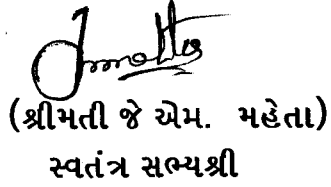 (શ્રીમતી જે એમ. મહેતા)
સ્વતંત્ર સભ્યશ્રી